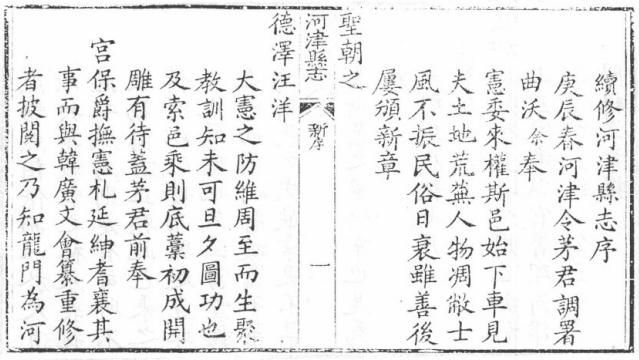 續修河津縣志序
庚辰春河津令茅君調署
曲沃余奉
憲委來權斯邑始下車見
夫土地荒蕪人物凋敝士
風不振民俗日衰雖善後
屢頒新章
河津縣志
新序
一
聖朝之
德澤汪洋
大憲之防維周至而生聚
教訓知未可旦夕圖功也
及索邑乘則底藁初成開
雕有待蓋茅君前奉
宮保爵撫憲札延紳耆襄其
事而與韓廣文會纂重修
者披閱之乃知龍門為河